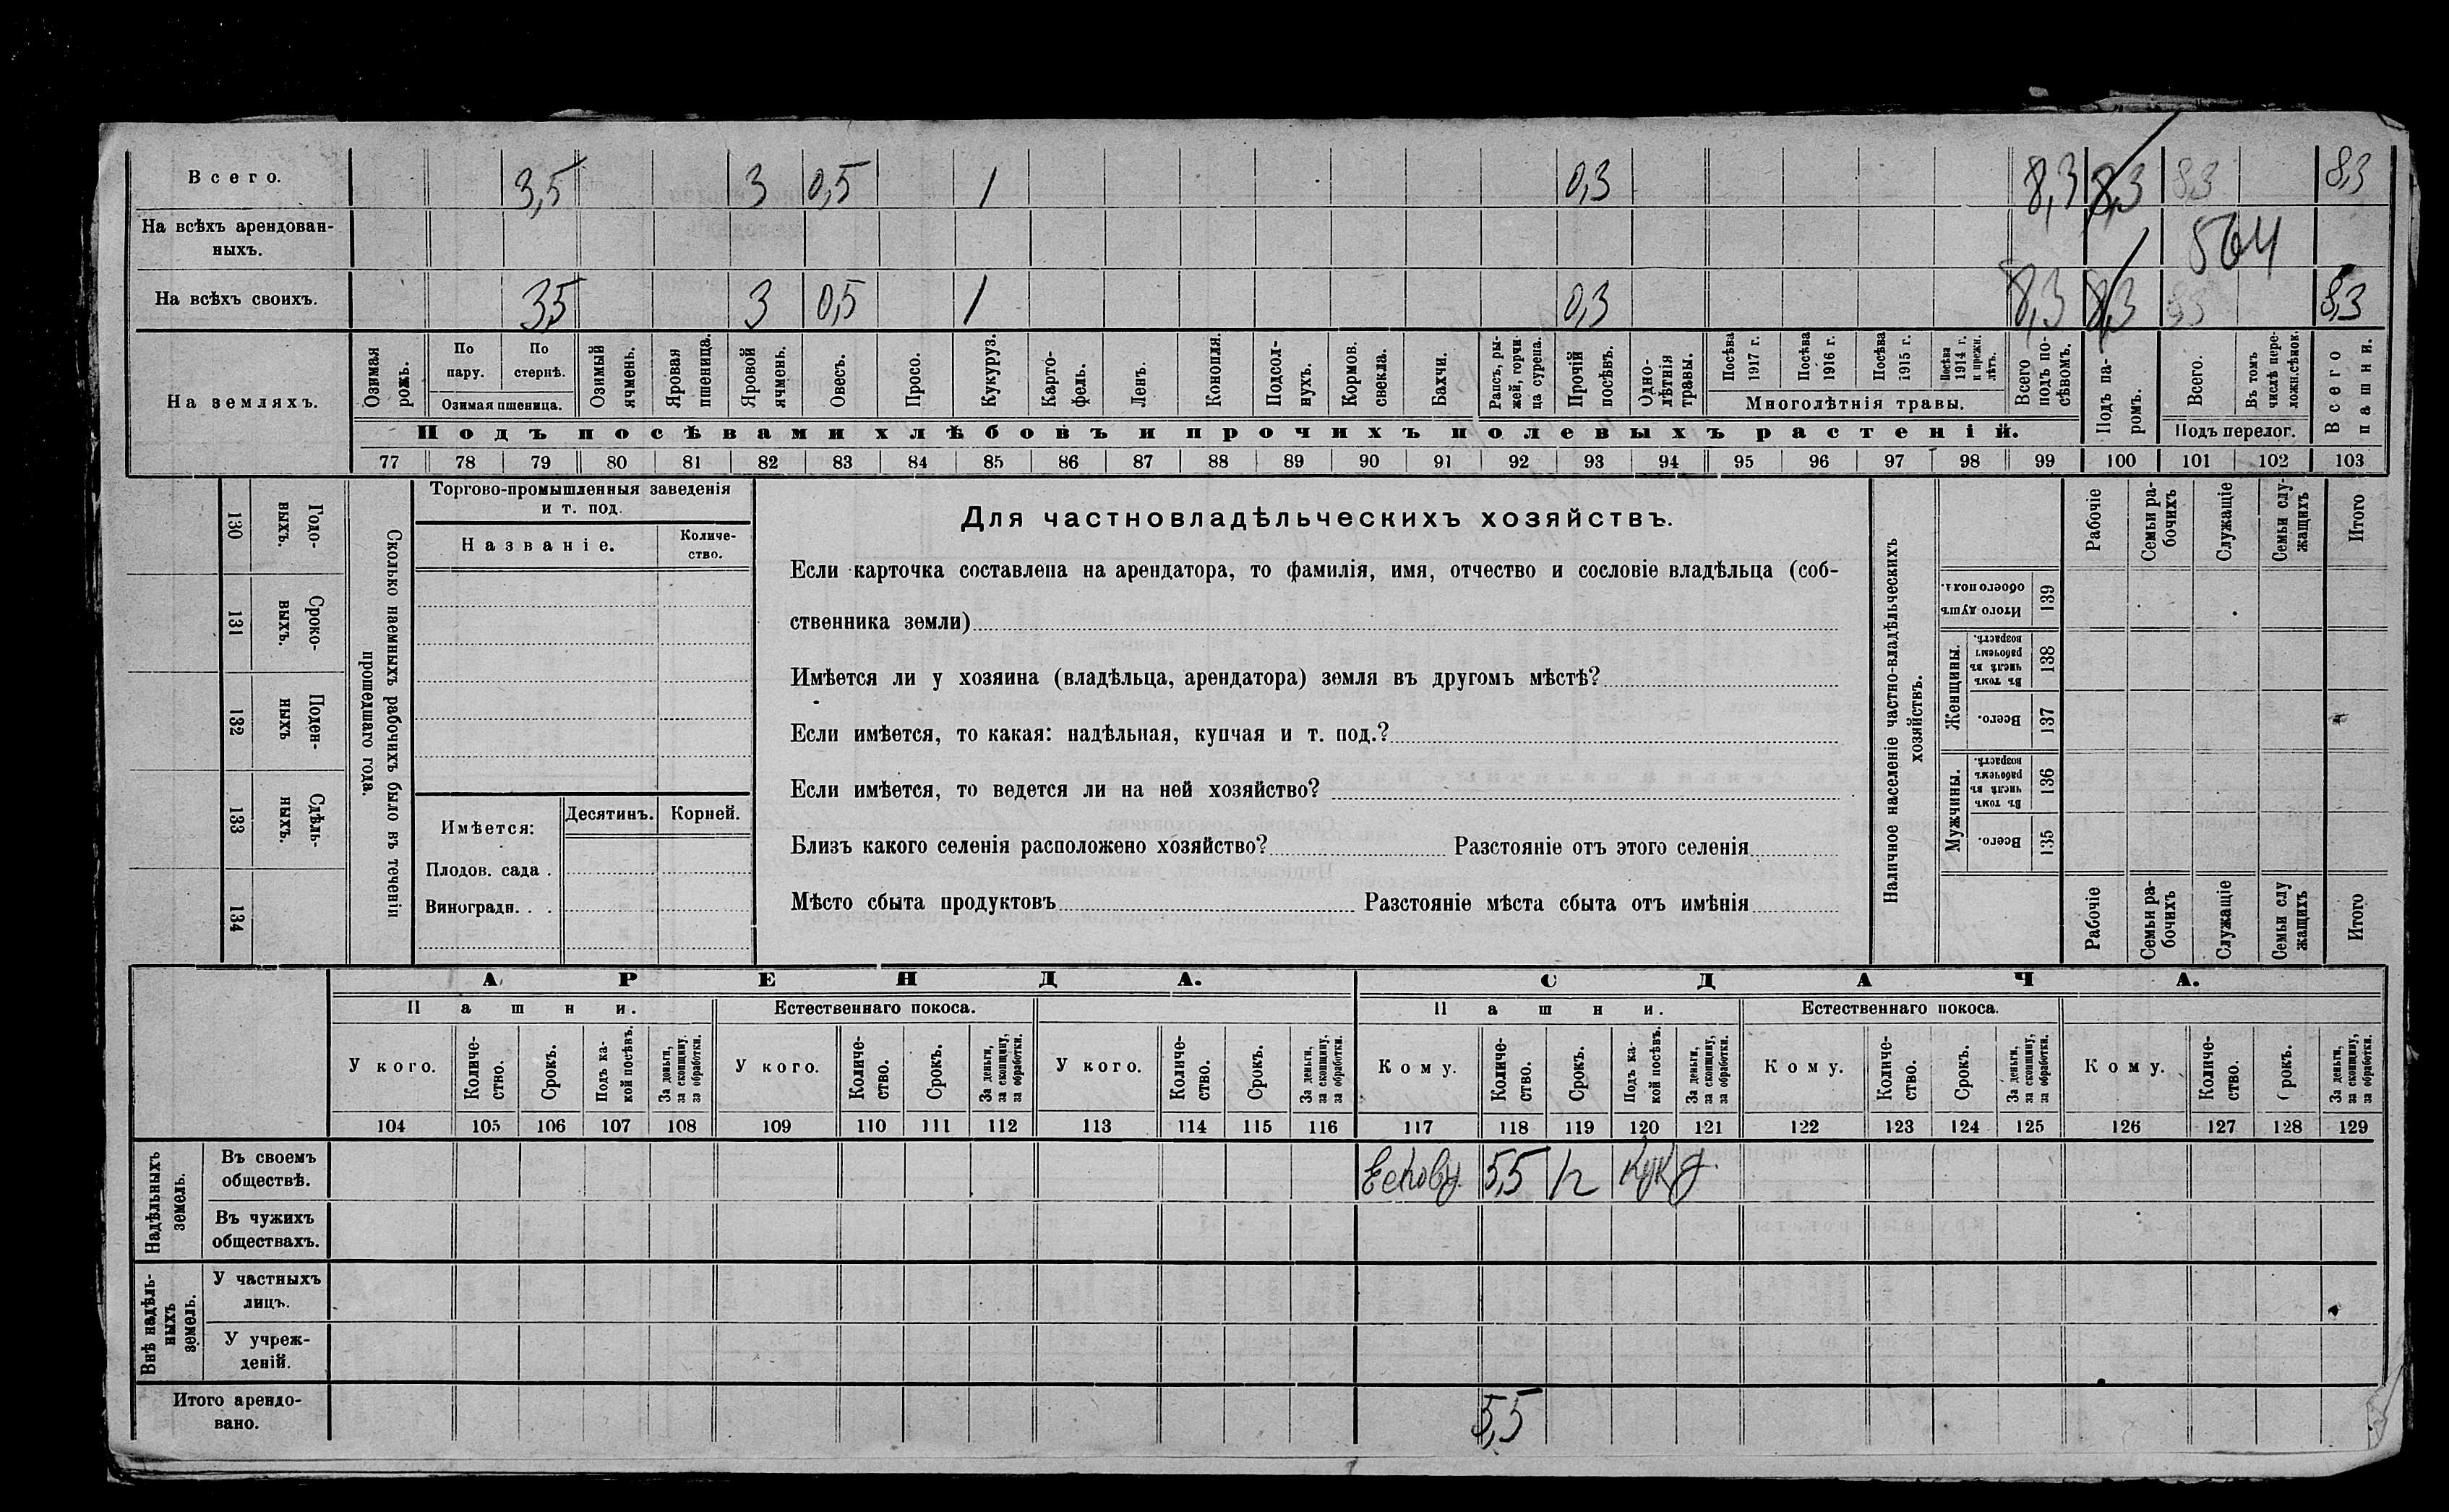 Всего. 3,5 3 0,5 1 0,3 8,3 8,3 8,3 8,3
На всѣхъ арендован-
ныхъ. 564
На всѣхъ своихъ. 3,5 3 0,5 1 0,3 8,3 8,3 8,3 8,3
На земляхъ.
Озимая рожь.
По пару.
По стернѣ.
Озимая пшеница.
Озимый ячмень.
Яровая пшеница.
Яровой ячмень.
Овесъ.
Просо.
Кукуруз.
Карто-
фель.
Ленъ.
Конопля.
Подсол-
нухъ.
Кормов.
свекла.
Бахчи.
Рапсъ, ры-
жей, горчи-
ца сурепа.
Прочій
посѣвъ.
Одно-
лѣтнія
травы.
Посѣва 1917 г.
Посѣва 1916 г.
Посѣва 1915 г.
Посѣва 1914 г. и прежн. лѣтъ.
Многолѣтнія травы.
Всего подъ по-
сѣвомъ.
Подъ па-
ромъ.
Всего.
Въ томъ числѣ пере-
ложн.сѣнок.
Подъ перелог.
Всего пашни.
Подъ посѣвами хлѣбовъ и прочихъ полевыхъ растеній.
77 78 79 80 81 82 83 84 85 86 87 88 89 90 91 92 93 94 95 96 97 98 99 100 101 102 103
130 Годо-
выхъ.
131 Сроко-
выхъ.
132 Поден-
ныхъ
133 Сдѣль-
ныхъ.
134
Сколько наемныхъ рабочихъ было въ теченіи
прошедшаго года.
Торгово-промышленныя заведенія
и т. под.
Названіе.
Количе-
ство.
Имѣется:
Десятинъ. Корней.
Плодов. сада .
Виноградн. . .
Для частновладѣльческихъ хозяйствъ.
Если карточка составлена на арендатора, то фамилія, имя, отчество и сословіе владѣльца (соб-
ственника земли)
Имѣется ли у хозяина (владѣльца, арендатора) земля въ другомъ мѣстѣ?
Если имѣется, то какая: надѣльная, купчая и т. под.?
Если имѣется, то ведется ли на ней хозяйство?
Близъ какого селенія расположено хозяйство? Разстояніе отъ этого селенія
Мѣсто сбыта продуктовъ Разстояніе мѣста сбыта отъ имѣнія
Наличное населеніе частно-владѣльческихъ
хозяйствъ.
Итого душъ обоего пола. 139
Женщины.
Въ томъ числѣ въ рабочемъ возрастѣ. 138
Всего. 137
Мужчины.
Въ томъ числѣ въ рабочемъ возрастѣ. 136
Всего. 135
Рабочіе
Семьи ра-
бочихъ
Служащіе
Семьи слу-
жащихъ
Итого
Рабочіе
Семьи ра-
бочихъ
Служащіе
Семьи слу
жащихъ
Итого
АРЕНДА. СДАЧА.
Пашни. Естественнаго покоса. Пашни. Естественнаго покоса.
У кого.
Количе-
ство.
Срокъ.
Подъ ка-
кой посѣвъ.
За деньги,
за скопщину,
за обработки.
У кого.
Количе-
ство.
Срокъ.
За деньги,
за скопщину,
за обработки.
У кого.
Количе-
ство.
Срокъ.
За деньги,
за скопщину,
за обработки.
Кому.
Количе-
ство.
Срокъ.
Подъ ка-
кой посѣвъ.
За деньги,
за скопщину,
за обработки.
Кому.
Количе-
ство.
Срокъ.
За деньги,
за скопщину,
за обработки.
Кому.
Количе-
ство.
Срокъ.
За деньги,
за скопщину,
за обработки.
104 105 106 107 108 109 110 111 112 113 114 115 116 117 118 119 120 121 122 123 124 125 126 127 128 129
Надѣльныхъ
земель.
Въ своемъ
обществѣ. 5,5
Въ чужихъ
обществахъ.
Внѣ надѣль-
ныхъ
земель.
У частныхъ
лицъ.
У учреж-
деній.
Итого арендо-
вано. 5,5